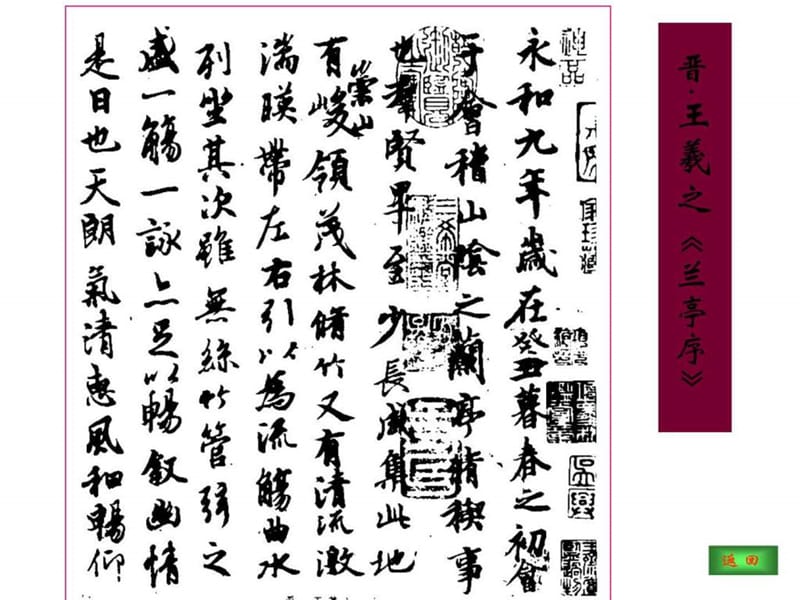 永和九年歲在癸丑暮春之初會
于會稽山陰之蘭亭脩稧事
也羣賢畢至少長咸集此地
有崇山峻領茂林脩竹又有清流激
湍暎帶左右引以為流觴曲水
列坐其次雖無絲竹管弦之
盛一觴一詠亦足以暢敘幽情
是日也天朗氣清惠風和暢仰
晋·王羲之《兰亭序》
返回